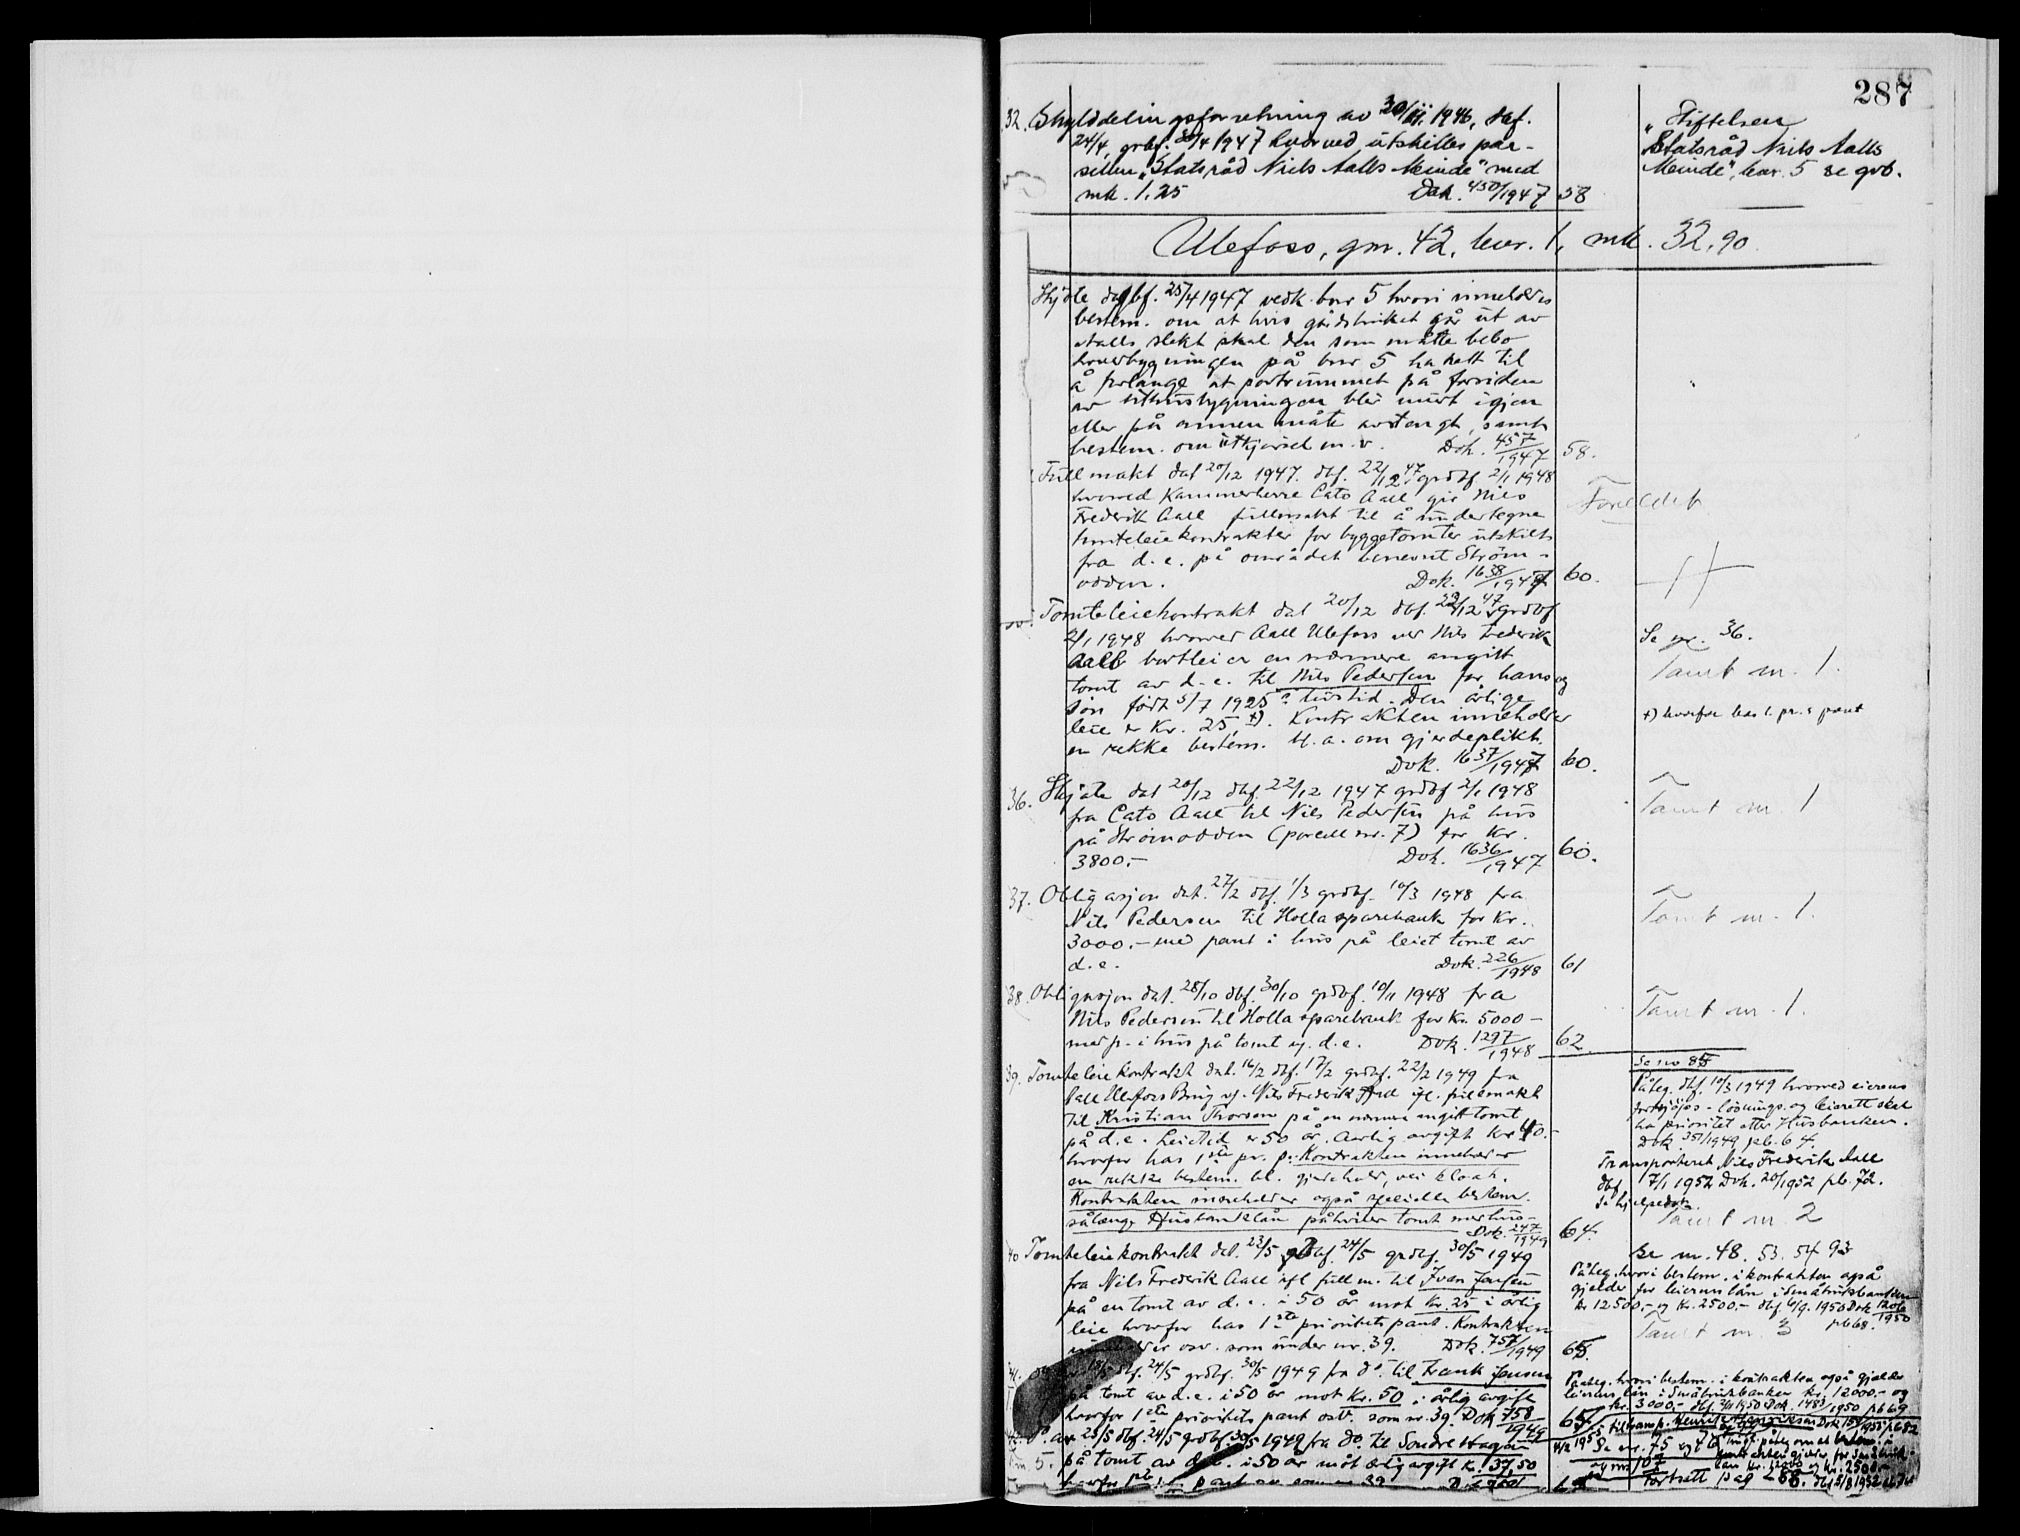 287
32. Skylddelingsforretning av 30/11. 1946, dat.
24/4, grbf. 30/4 1947 hvorved utskilles par-
sellen „Statsråd Niels Aalls Meinde" med
mk. 1.25 Dok. 450/1947 58
Stiftelsen
„Statsråd Niels Aalls
Meinde", bnr. 5 se grb.
Ulefoss, gnr. 42, bnr. 1, mk. 32.90
Skjøte dagbf. 25/4 1947 vedk. bnr 5 hvori inneholdes
bestem. om at hvis gårdsbruket går ut av
Aalls slekt skal den som måtte bebo
hovedbygningen på bnr 5 ha rett til
å forlange at portrummet på forsiden
av uthusbygningen blir murt igjen
eller på annen måte avstengt, samt
bestem. om utkjørsel m.v. Dok. 457/1947 58.
Fullmakt dat 20/12 1947. dbf. 22/12 47 grdbf 2/1 1948
hvorved Kammerherre Cato Aall gir Nils
Frederik Aall fullmakt til å undertegne
tomteleiekontrakter for byggetomter utskilt
fra d.e. på området benevnt Strøm-
odden. Dok. 1638/1947 60.
Foreldet
Tomteleiekontrakt dat 20/12 dbf. 22/12 47 grdbf
2/1 1948 hvorved Aall Ulefoss ved Nils Frederik
Aall bortleier en nærmere angitt
tomt av d.e. til Nils Pedersen for hans og
søn født 5/7 1925's livstid. Den årlige
leie er Kr. 25, +). Kontrakten inneholder
en rekke bestem. bl.a. om gjerdeplikt.
Dok. 1637/1947 60.
Se nr. 36.
Tomt nr. 1.
+) hvorfor has 1. pr.s pant
36. Skjøte dat 20/12 dbf. 22/12 1947 grdbf 2/1 1948
fra Cato Aall til Nils Pedersen på hus
på Strømodden (parcell nr. 7) for Kr.
3800.- Dok. 1636/1947 60.
Tomt nr 1
37. Obligasjon dat. 27/2 dbf. 1/3 grdbf. 10/3 1948 fra
Nils Pedersen til Holla sparebank for Kr.
3000.- med pant i hus på leiet tomt av
d.e. Dok. 226/1948 61
Tomt nr. 1.
38. Obligasjon dat. 28/10 dbf. 30/10 grdbf. 10/11 1948 fra
Nils Pedersen til Holla sparebank for Kr. 5000-
med p. i hus på tomt av d.e. Dok. 1297/1948 62
Tomt nr. 1.
39. Tomteleiekontrakt dat. 16/2 dbf. 17/2 grdbf. 22/2 1949 fra
Aall Ulefoss Brug v/ Nils Frederik Aall ifl. fullmakt
til Kristian Thorsen på en nærmere angitt tomt
på d.e. Leietid er 50 år. Aarlig avgift kr 40.-
hvorfor has 1ste pr. p. Kontrakten inneholder
en rekke bestem. bl. gjerdehold, vei kloak.
Kontrakten inneholder også specielle bestem.
sålænge Husbanklån påhviler tomt med hus-
Dok. 247/1949 64.
Se nr 85
Påteg. dbf. 10/3 1949 hvorved eierens
forkjøps- løsnings- og leierett skal
ha prioritet etter Husbanken.
Dok 351/1949 pb. 64.
Transporteret Nils Frederik Aall
dbf. 7/1 1952 Dok. 20/1952 pb. 72.
Se hjelpedok.
Tomt nr. 2
40 Tomteleiekontrakt dat. 23/5 dbf. 24/5 grdbf. 30/5 1949
fra Nils Frederik Aall ifl fullm. til Ivan Jensen
på en tomt av d.e. i 50 år mot Kr. 25 i årlig
leie hvorfor has 1ste prioritets pant. Kontrakten
inneholder osv. som under nr. 39. Dok. 757/1949 65.
Se nr. 48. 53. 54 93
Påteg. hvori bestem. i kontrakten også
gjelder for leierens lån i Småbruksbanken
kr 12500.- og Kr. 2500.- dbf. 6/9. 1950 Dok 1206/1950
pb 68.
Tomt nr. 3
41. 18/5 dbf. 24/5 grdbf. 30/5 1949 fra do. til Frank Jensen
på tomt av d.e. i 50 år mot Kr. 50 i årlig avgift
hvorfor 1ste prioritets pant osv. som nr. 39. Dok 758/1949 65
Påteg. hvori bestem. i kontrakten også gjelder
leierens lån i Småbruksbanken kr. 12000.- og
kr. 3000.- dbf. 1950 Dok. 1483/1950 pb 69
til transp. Henrik Henriksen
do. dat 23/5 dbf. 24/5 grdbf. 30/5 1949 fra do. til Sondre Hagen
på tomt av d.e. i 50 år mot årlig avgift kr. 37,50
hvorfor 1ste pant av som nr 39
Se nr. 75